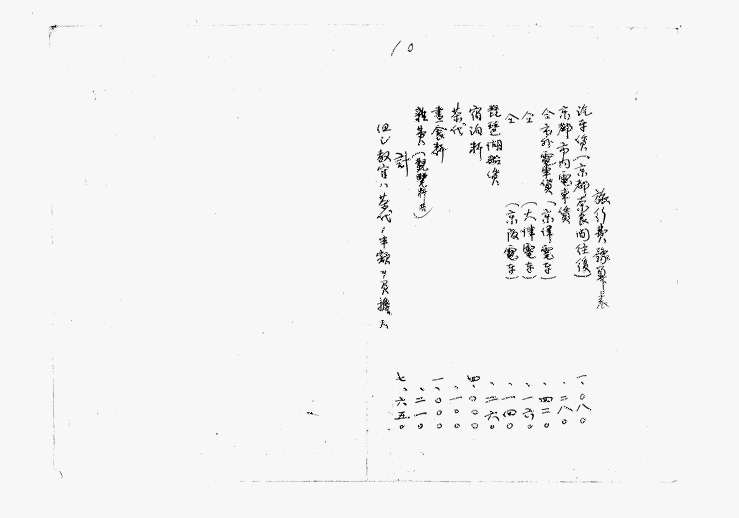 10
旅行費豫算表
汽車賃(京都奈良間往復) 一、〇八〇
京都市内電車賃 、二八〇
仝市外電車賃(京津電車) 、四二〇
仝 (大津電車) 、一六〇
仝 (京阪電車) 、一四〇
琵琶湖船賃 、二六〇
宿泊料 四、〇〇〇
茶代 、一〇〇
晝食料 一、〇〇〇
雜費(観覧料共) 、二一〇
計 七、六五〇
但シ教官ハ茶代ノ半額ヲ負擔ス